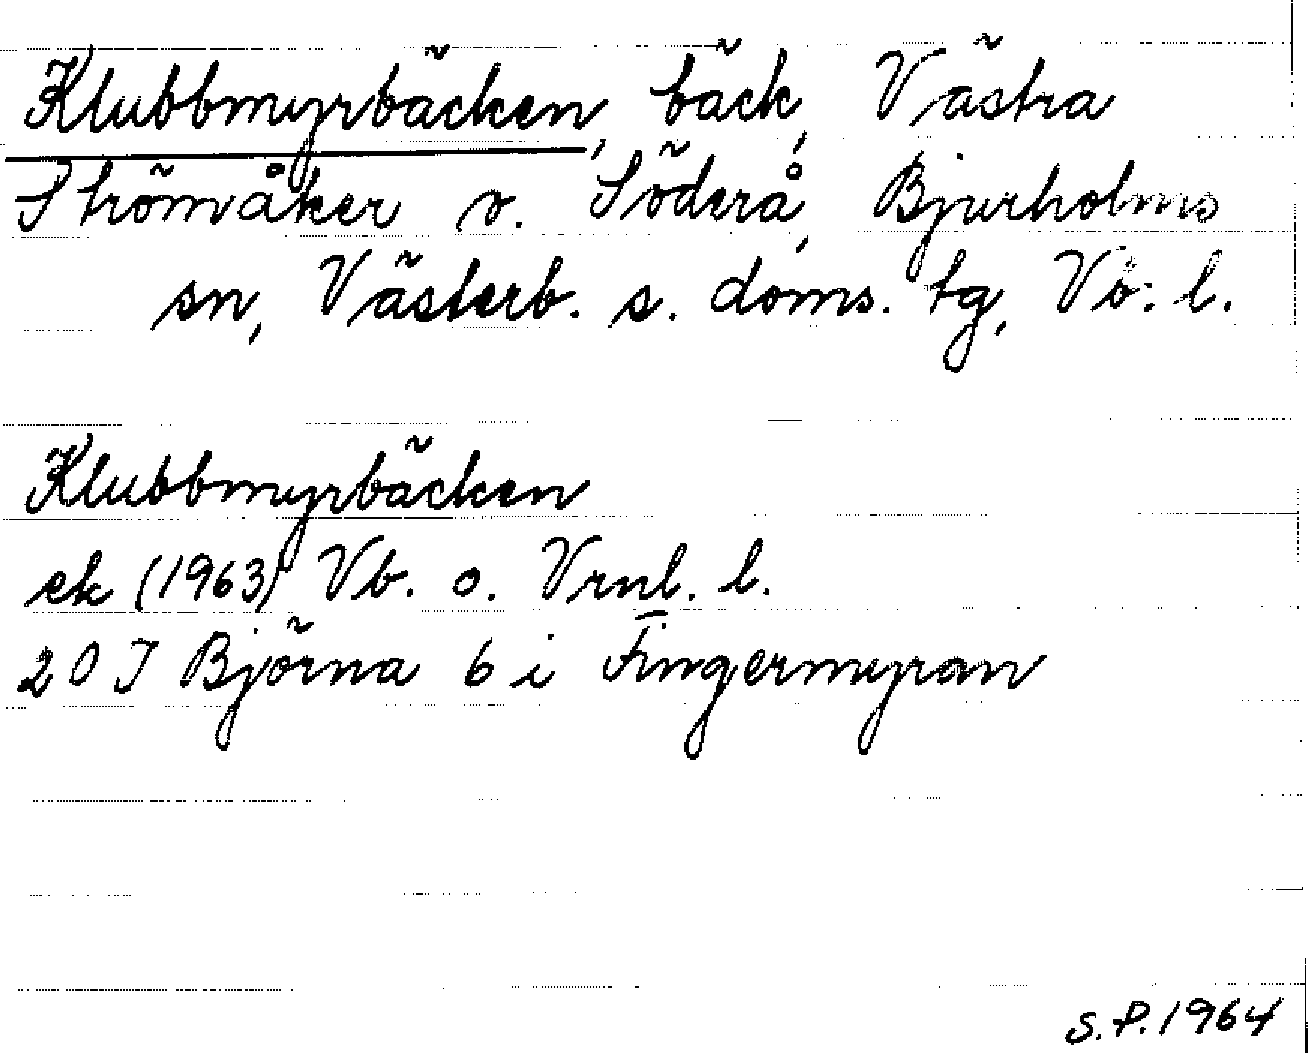 Klubbmyrbäcken, bäck, Västra
Strömåker o. Söderå, Bjurholms
sn, Västerb. s. doms. tg, Vb: l.
Klubbmyrbäcken
ek (1963) Vb. o. Vrnl. l.
20 J Björna 6 i Fingermyran
S.P. 1964